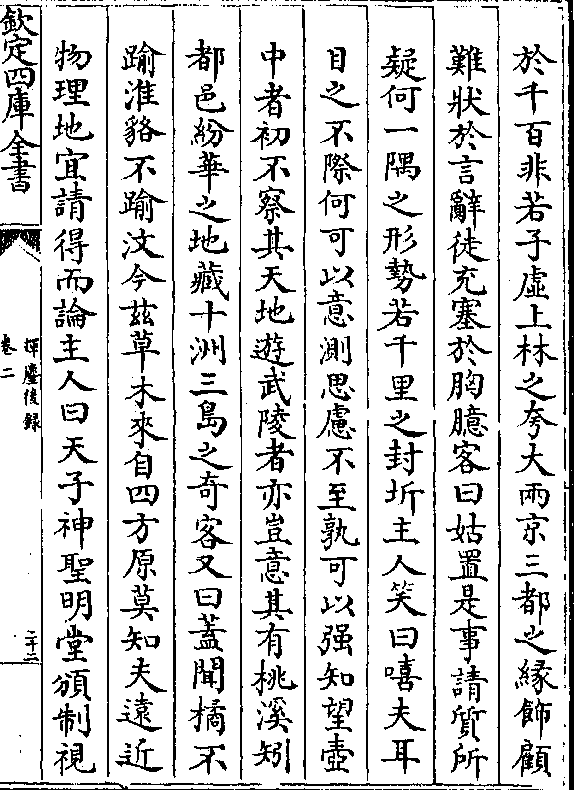 於千百非若子虛上林之夸大兩京三都之緣飾顧
難狀於言辭徒充塞於胸臆客曰姑置是事請質所
疑何一隅之形勢若千里之封圻主人笑曰嘻夫耳
目之不際何可以意測思慮不至孰可以强知望壺
中者初不察其天地遊武陵者亦豈意其有桃溪矧
都邑紛華之地藏十洲三島之奇客又曰蓋聞橘不
踰淮貉不踰汶今玆草木來自四方原莫知夫遠近
物理地宜請得而論主人曰天子神聖明堂頒制視
欽定四庫全書
揮麈後錄
卷二
二十二